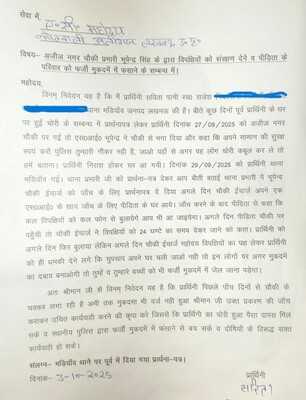 सेवा में,
विषय- अजीज नगर चौकी प्रभारी भूपेन्द्र सिंह के द्वारा विपक्षियों को संरक्षण देने व पीड़िता के
परिवार को फर्जी मुकदमें में फसाने के सम्बन्ध में।
महोदय,
विनम्र निवेदन यह है कि मैं प्रार्थिनी सविता पत्नी स्व0 राजेश
थाना मड़ियाँव जनपद लखनऊ की है। बीते कुछ दिनों पूर्व प्रार्थिनी के घर
पर हुई चोरी के सम्बन्ध में प्रार्थनापत्र लेकर प्रार्थिनी दिनांक 27/09/2025 को अजीज नगर
चौकी पर गई तो एस0आई0 भूपेन्द्र ने चौकी से भगा दिया और कहा कि अपने सामान की सुरक्षा
स्वयं करों पुलिस तुम्हारी नौकर नही है, जाओ यहाँ से अगर वह लोग चोरी कबूल कर ले तो
हमें बताना। प्रार्थिनी निराश होकर घर आ गयी। दिनांक 29/09/2025 को प्रार्थिनी थाना
मड़ियाँव गई। थाना प्रभारी जी को प्रार्थना-पत्र देकर आप बीती बताई थाना प्रभारी ने भूपेन्द्र
चौकी ईंचार्ज को जाँच के लिए प्रार्थनापत्र दे दिया अगले दिन चौकी ईंचार्ज अपने एक
एस0आई0 के साथ जाँच के लिए पीड़िता के घर आये। जाँच करने के बाद पीड़िता ने कहा कि
कल विपक्षियों को कल फोन से बुलायेगे आप भी आ जाइयेगा। अगले दिन पीड़िता चौकी पर
पहुँची तो चौकी इंचार्ज ने विपक्षियों को 24 घण्टे का समय देकर जाने को कहा। प्रार्थिनी को
अगले दिन फिर बुलाया लेकिन अगले दिन चौकी ईंचार्ज महोदय विपक्षियों का पक्ष लेकर प्रार्थिनी
को ही धमकी देने लगे कि चुपचाप अपने घर चली जाओ नही तो इन लोगों पर अगर मुकदमें
का दबाव बनाओगी तो तुम्हें व तुम्हारे बच्चों को भी फर्जी मुकदमें में जेल जाना पड़ेगा।
अतः श्रीमान जी से विनम्र निवेदन है कि प्रार्थिनी पिछले पाँच दिनों से चौकी के
चक्कर लगा रही है अभी तक मुकदमा भी दर्ज नही हुआ श्रीमान जी उक्त प्रकरण की जाँच
कराकर उचित कार्यवाही करने की कृपा करे जिससे कि प्रार्थिनी का चोरी हुआ पैसा वापस मिल
सके व स्थानीय पुलिस द्वारा फर्जी मुकदमें में फसाने से बच सके व दोषियों के विरूद्ध सख्त
कार्यवाही हो सके।
संलग्न- मड़ियाँव थाने पर पूर्व में दिया गया प्रार्थना-पत्र।
दिनांक- 3-10-2025
प्रार्थिनी
सविता